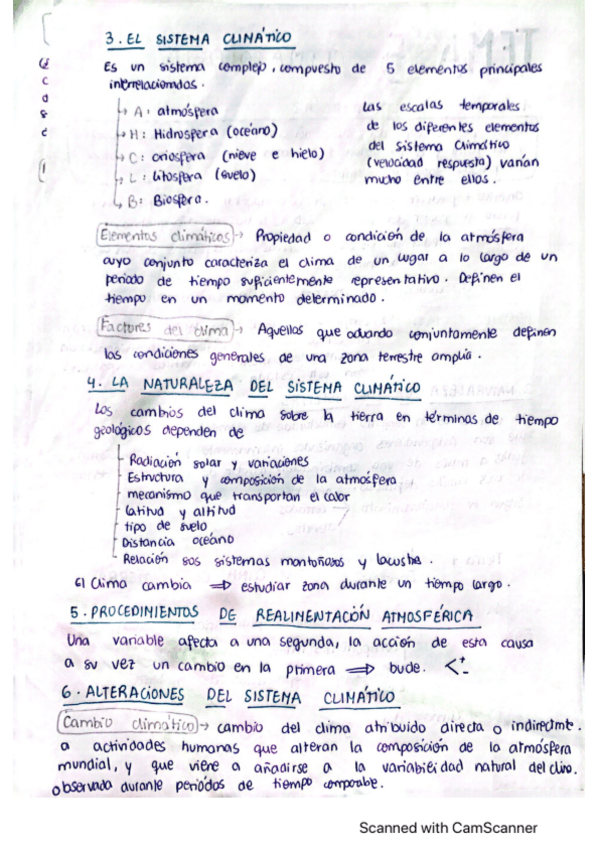 3. EL SISTEMA CLIMÁTICO
Es un sistema complejo, compuesto de 5 elementos principales
interrelacionados.
↳ A: atmósfera
↳ H: Hidrosfera (océano)
↳ C: criosfera (nieve e hielo)
↳ L: litosfera (suelo)
↳ B: Biosfera.
Las escalas temporales
de los diferentes elementos
del Sistema Climático
(velocidad respuesta) varían
mucho entre ellos.
Elementos climáticos → Propiedad o condición de la atmósfera
cuyo conjunto caracteriza el clima de un lugar a lo largo de un
periodo de tiempo suficientemente representativo. Definen el
tiempo en un momento determinado.
Factores del clima → Aquellos que actuando conjuntamente definen
las condiciones generales de una zona terrestre amplia.
4. LA NATURALEZA DEL SISTEMA CLIMÁTICO
Los cambios del clima sobre la tierra en términas de tiempo
geológicos dependen de
Radiación solar y variaciones
Estructura y composición de la atmósfera
mecanismo que transportan el calor
latitud y altitud
tipo de suelo
Distancia océano
Relación sos sistemas montañosos y
El Clima cambia ⇒ estudiar zona durante un tiempo largo.
5. PROCEDIMIENTOS DE REALIMENTACIÓN ATMOSFÉRICA
Una variable afecta a una segunda, la acción de esta causa
a su vez un cambio en la primera ⇒ bucle. < + -
6. ALTERACIONES DEL SISTEMA CLIMÁTICO
Cambio climático → cambio del clima atribuido directa o indirectmt.
a actividades humanas que alteran la composición de la atmósfera
mundial, y que viene a añadirse a la variabilidad natural del
observada durante periódos de tiempo comparable.
Scanned with CamScanner